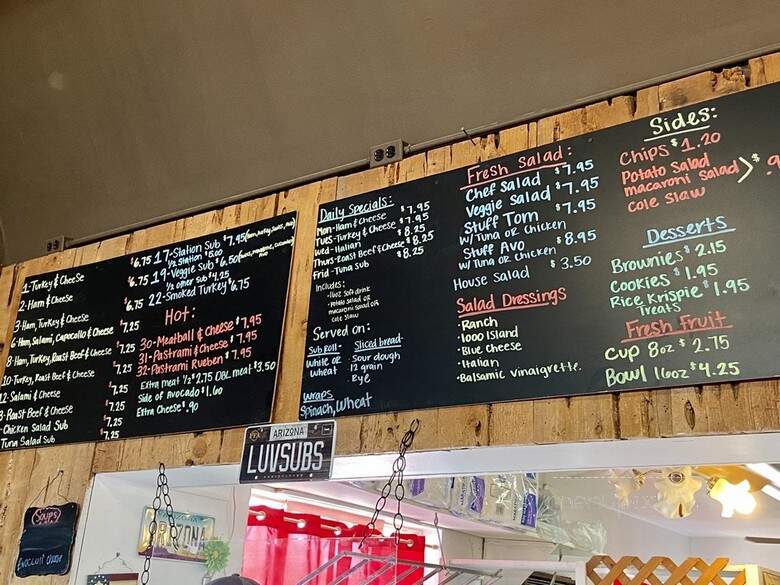 1-Turkey & Cheese $6.75
2-Ham & Cheese $6.75
3-Ham, Turkey & Cheese $6.75
6-Ham, Salami, Capocollo & Cheese $7.25
8-Ham, Turkey, Roast Beef & Cheese $7.25
10-Turkey, Roast Beef & Cheese $7.25
12-Salami & Cheese $7.25
Roast Beef & Cheese $7.25
Chicken Salad Sub $7.25
Tuna Salad Sub $7.25
17-Station Sub $7.95
½ Station $5.00
19-Veggie Sub $6.50
½ other sub $4.25
22-Smoked Turkey $6.75
Hot:
30-Meatball & Cheese $7.95
31-Pastrami & Cheese $7.95
32-Pastrami Rueben $7.95
Extra meat ½ $2.75 DBL meat $3.50
Side of avocado $1.60
Extra Cheese $.90
Daily Specials:
Mon-Ham & Cheese $7.95
Tues-Turkey & Cheese $7.95
Wed-Italian $8.25
Thurs-Roast Beef & Cheese $8.25
Frid-Tuna Sub $8.25
Includes:
·16oz Soft drink
·Potato salad or
macaroni salad or
cole slaw
Served on:
Sub Roll-
White or
Wheat
Sliced bread-
·Sour dough
·12 grain
·Rye
Wraps
Spinach, Wheat
Fresh Salad:
Chef Salad $7.95
Veggie Salad $7.95
Stuff Tom $7.95
w/Tuna or Chicken
Stuff Avo $8.95
w/Tuna or Chicken
House Salad $3.50
Salad Dressings
·Ranch
·1000 Island
·Blue Cheese
·Italian
·Balsamic Vinaigrette
Sides:
Chips $1.20
Potato Salad
macaroni salad
cole slaw
Desserts
Brownies $2.15
Cookies $1.95
Rice Krispie $1.95
Treats
Fresh Fruit
Cup 8oz $2.75
Bowl 16oz $4.25
ARIZONA
LUVSUBS
Soups